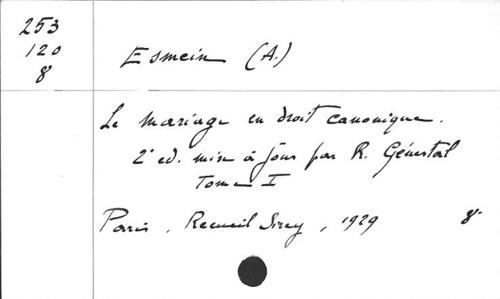 253
120
8
Esmein (A.)
Le mariage en droit canonique.
2e ed. mise à jour par R. Génestal
Tome I
Paris, Recueil Sirey, 1929 8°